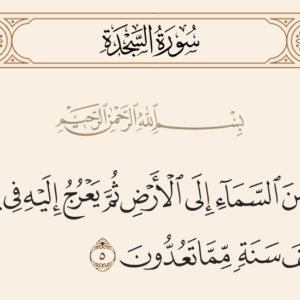 سُورَةُ السَّجْدَةِ
بِسْمِ ٱللَّهِ ٱلرَّحْمَٰنِ ٱلرَّحِيمِ
ٱلسَّمَآءِ إِلَى ٱلْأَرْضِ ثُمَّ يَعْرُجُ إِلَيْهِ فِى
سَنَةٍ مِّمَّا تَعُدُّونَ ٥